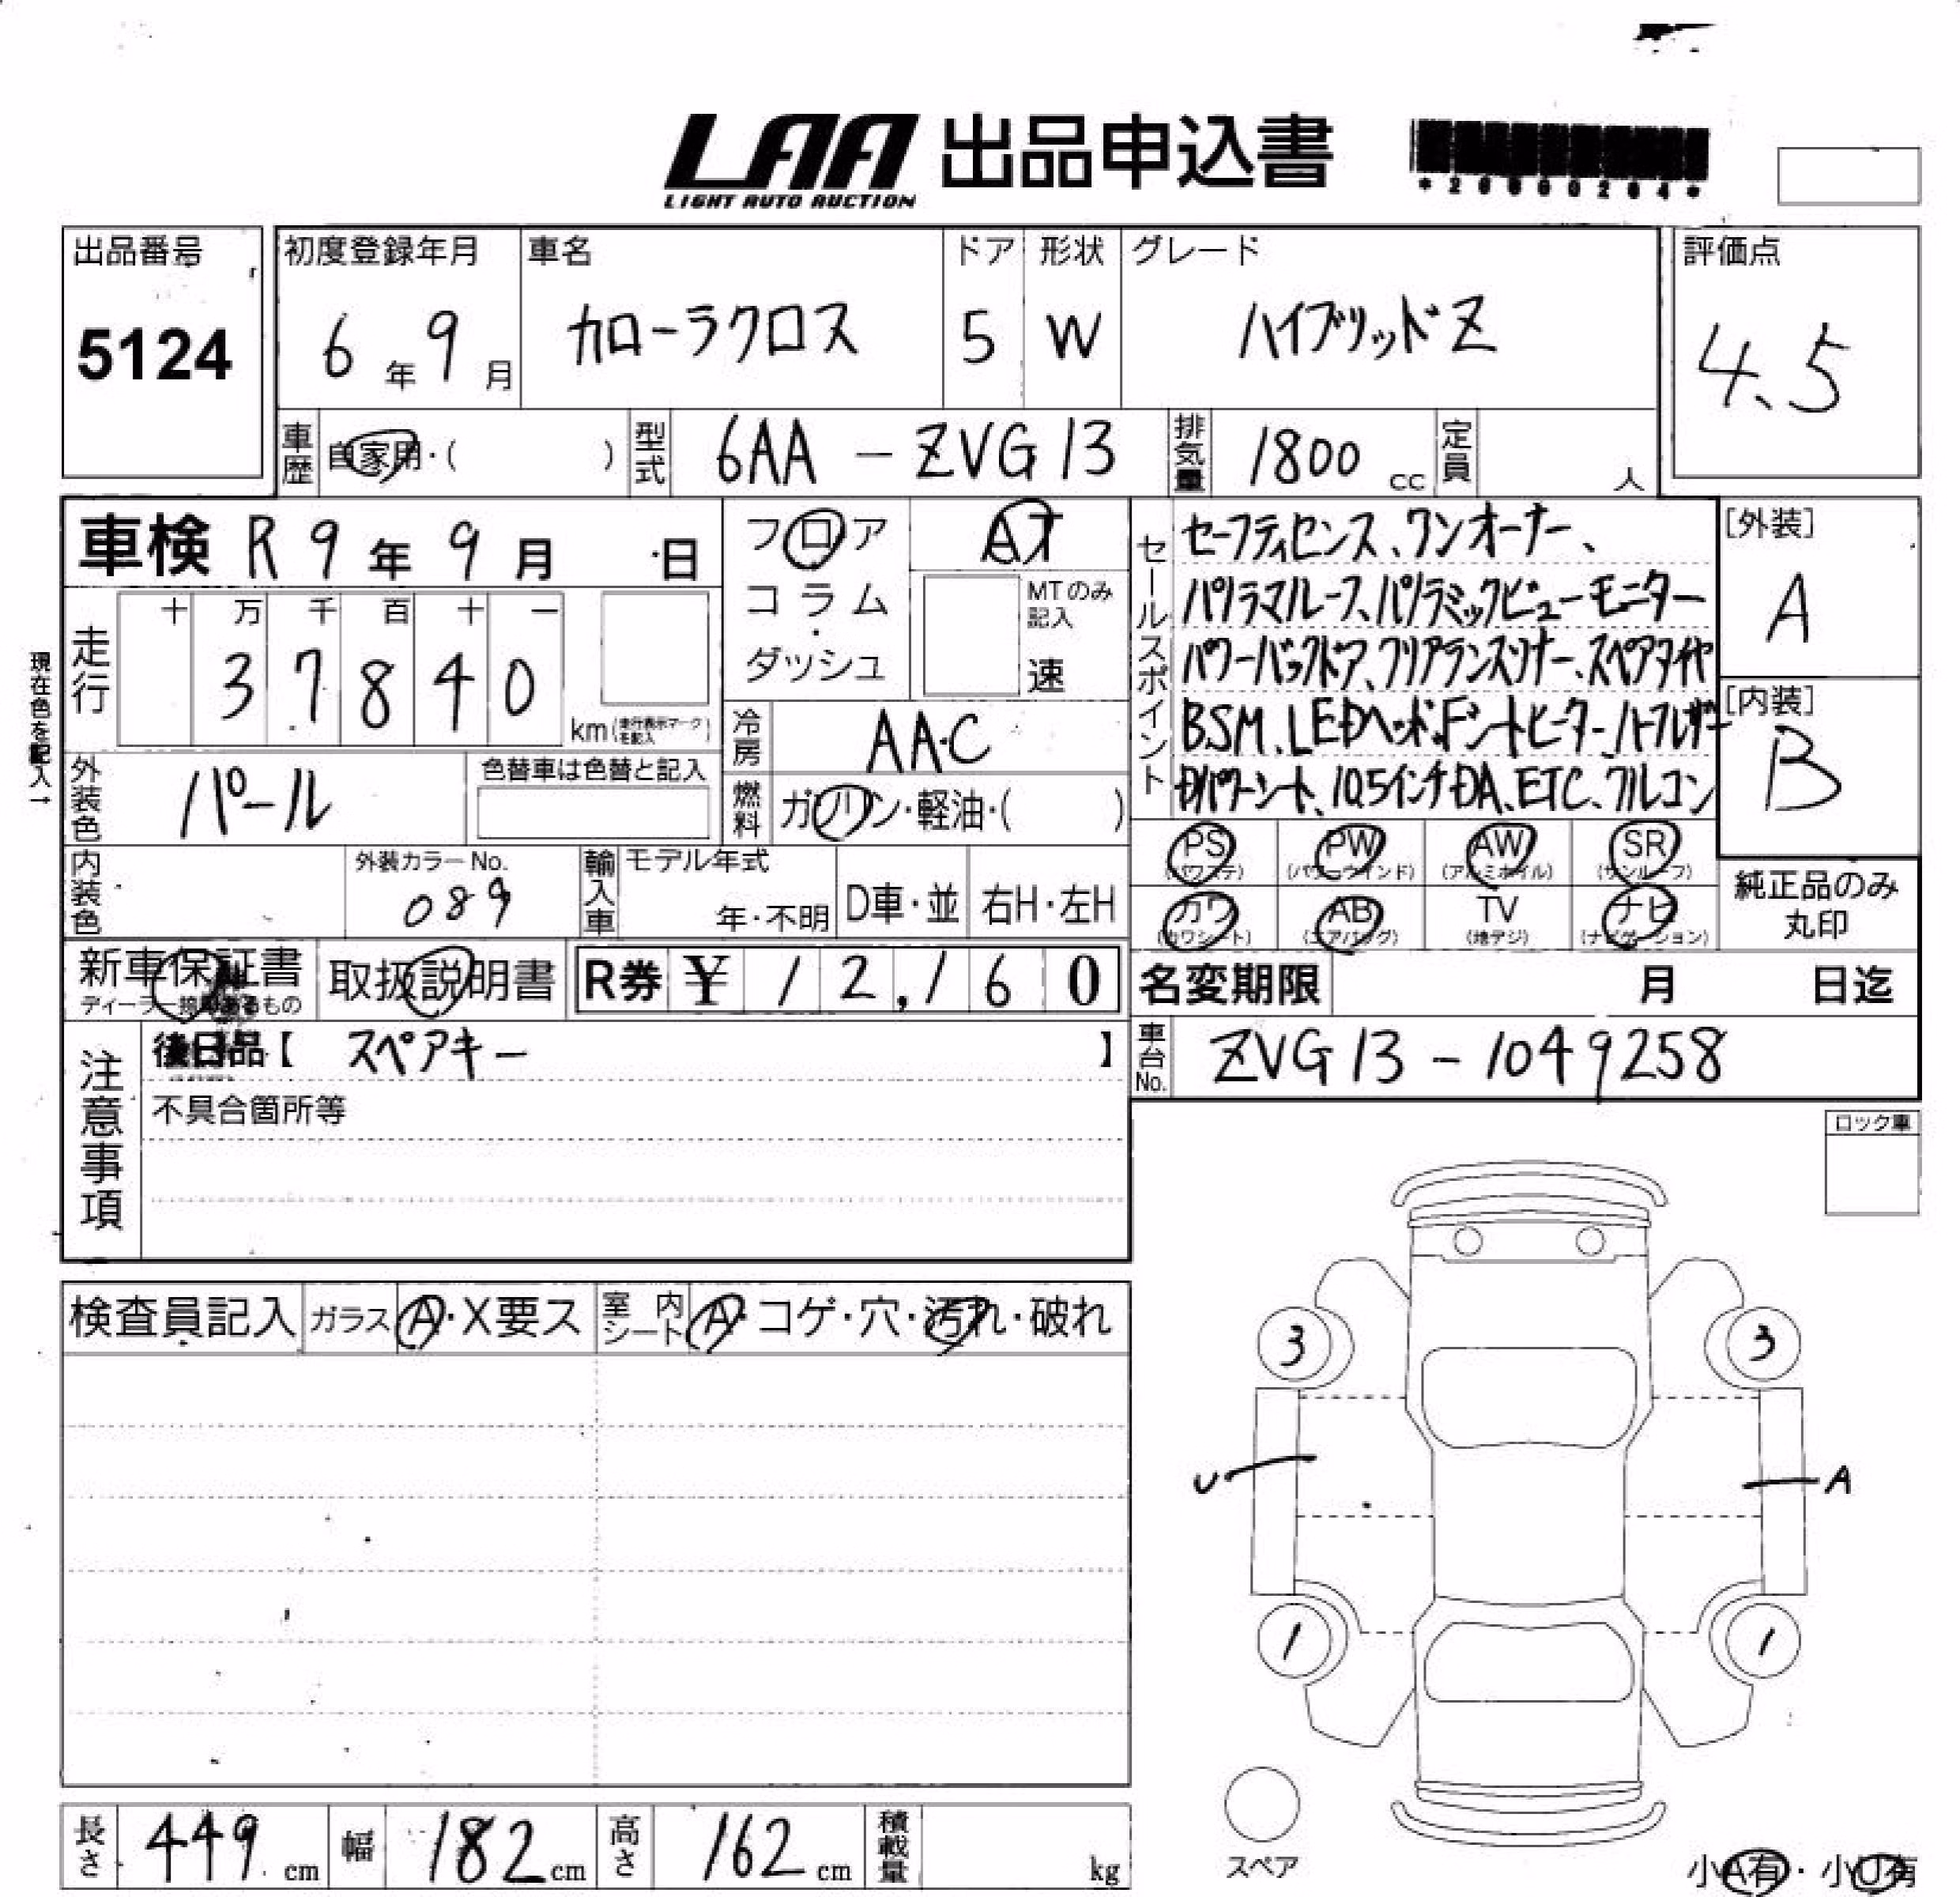 LAA 出品申込書
LIGHT AUTO AUCTION
出品番号
5124
初度登録年月
6年9月
車名
カローラクロス
ドア
5
形状
W
グレード
ハイブリッドZ
評価点
4.5
車歴 自家用・( )
型式 6AA-ZVG13
排気量 1800 cc
定員 人
車検 R9年9月 日
フロア
コラム
・
ダッシュ
AT
MTのみ記入
速
セールスポイント
セーフティセンス、ワンオーナー、
パノラマルーフ、パノラミックビューモニター
パワーバックドア、クリアランスソナー、スペアタイヤ
BSM、LEDヘッド、
Dパワーシート、10.5インチDA、ETC、フルコン
[外装]
A
[内装]
B
現在色を記入→
走行
十 万 千 百 十 一
3 7 8 4 0
km (走行表示マークを記入)
冷房 AAC
外装色 パール
色替車は色替と記入
燃料 ガソリン・軽油・( )
内装色
外装カラーNo.
089
輸入車
モデル年式
年・不明
D車・並
右H・左H
PS (パワステ)
PW (パワーウインド)
AW (アルミホイル)
SR (サンルーフ)
カワ (カワシート)
AB (エアバッグ)
TV (地デジ)
ナビ (ナビゲーション)
純正品のみ
丸印
新車保証書
取扱説明書
R券 ¥ 12,160
名変期限 月 日迄
注意事項
後日品【 スペアキー 】
不具合箇所等
車台No. ZVG13-1049258
ロック車
検査員記入
ガラス A・X要ス
室内シート A・コゲ・穴・汚れ・破れ
3
3
U
A
1
1
スペア
長さ 449 cm
幅 182 cm
高さ 162 cm
積載量 kg
小A有・小U有